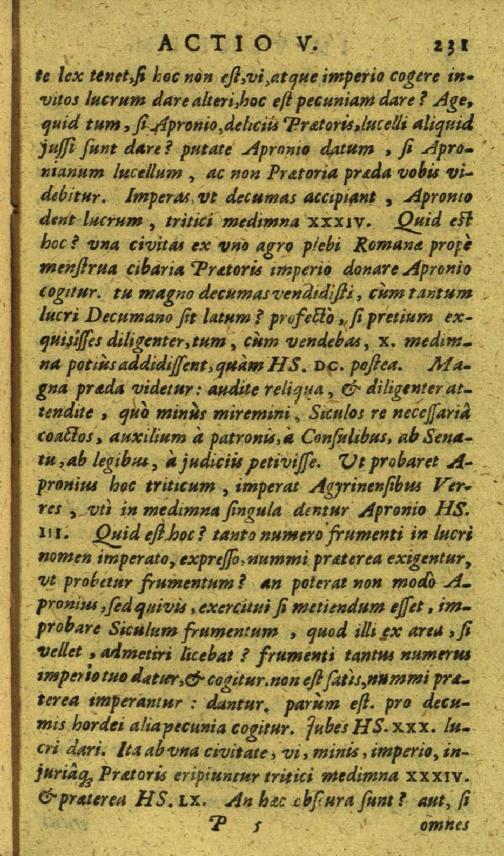 ACTIO V. 231
te lex tenet, si hoc non est, vi, atque imperio cogere in-
vitos lucrum dare alteri, hoc est pecuniam dare? Age,
quid tum, si Apronio, deliciis Prætoris, lucelli aliquid
jussi sunt dare? putate Apronio datum, si Apro-
nianum lucellum, ac non Prætoria præda vobis vi-
debitur. Imperas vt decumas accipiant, Apronio
dent lucrum, tritici medimna XXXIV. Quid est
hoc? vna civitas ex vno agro plebi Romanæ propè
menstrua cibaria Prætoris imperio donare Apronio
cogitur. tu magno decumas vendidisti, cùm tantum
lucri Decumano sit latum? profectò, si pretium ex-
quisisses diligenter, tum, cùm vendebas, X. medim-
na potiùs addidissent, quàm HS. DC. postea. Ma-
gna præda videtur: audite reliqua, & diligenter at-
tendite, quò minùs miremini, Siculos re necessariâ
coactos, auxilium à patronis, à Consulibus, ab Sena-
tu, ab legibus, à judiciis petivisse. Ut probaret A-
pronius hoc triticum, imperat Agyrinensibus Ver-
res, vti in medimna singula dentur Apronio HS.
III. Quid est hoc? tanto numero frumenti in lucri
nomen imperato, expresso, nummi præterea exigentur,
vt probetur frumentum? an poterat non modò A-
pronius, sed quivis, exercitui si metiendum esset, im-
probare Siculum frumentum, quod illi ex area, si
vellet, admetiri licebat? frumenti tantus numerus
imperio tuo datur, & cogitur. non est satis, nummi præ-
terea imperantur: dantur. parùm est. pro decu-
mis hordei alia pecunia cogitur. Jubes HS. XXX. lu-
cri dari. Ita ab vna civitate, vi, minis, imperio, in-
juriâq; Prætoris eripiuntur tritici medimna XXXIV.
& præterea HS. LX. An hæc obscura sunt? aut, si
P 5 omnes